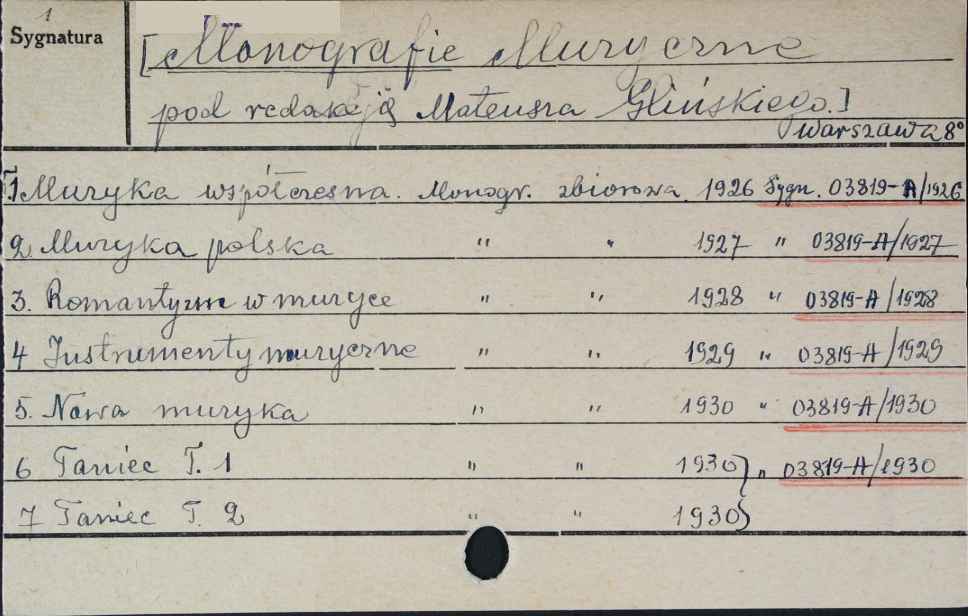 1
Sygnatura
[Monografie Muzyczne
pod redakcją Mateusza Glińskiego.]
Warszawa 8°
1 Muzyka współczesna. Monogr. zbiorowa. 1926 Sygn. 03819-A/1926
2 Muzyka polska " " 1927 " 03819-A/1927
3. Romantyzm w muzyce " " 1928 " 03819-A/1928
4 Instrumenty muzyczne " " 1929 " 03819-A/1929
5. Nowa muzyka " " 1930 " 03819-A/1930
6 Taniec T. 1 " " 1930} " 03819-A/1930
7 Taniec T. 2 " " 1930}